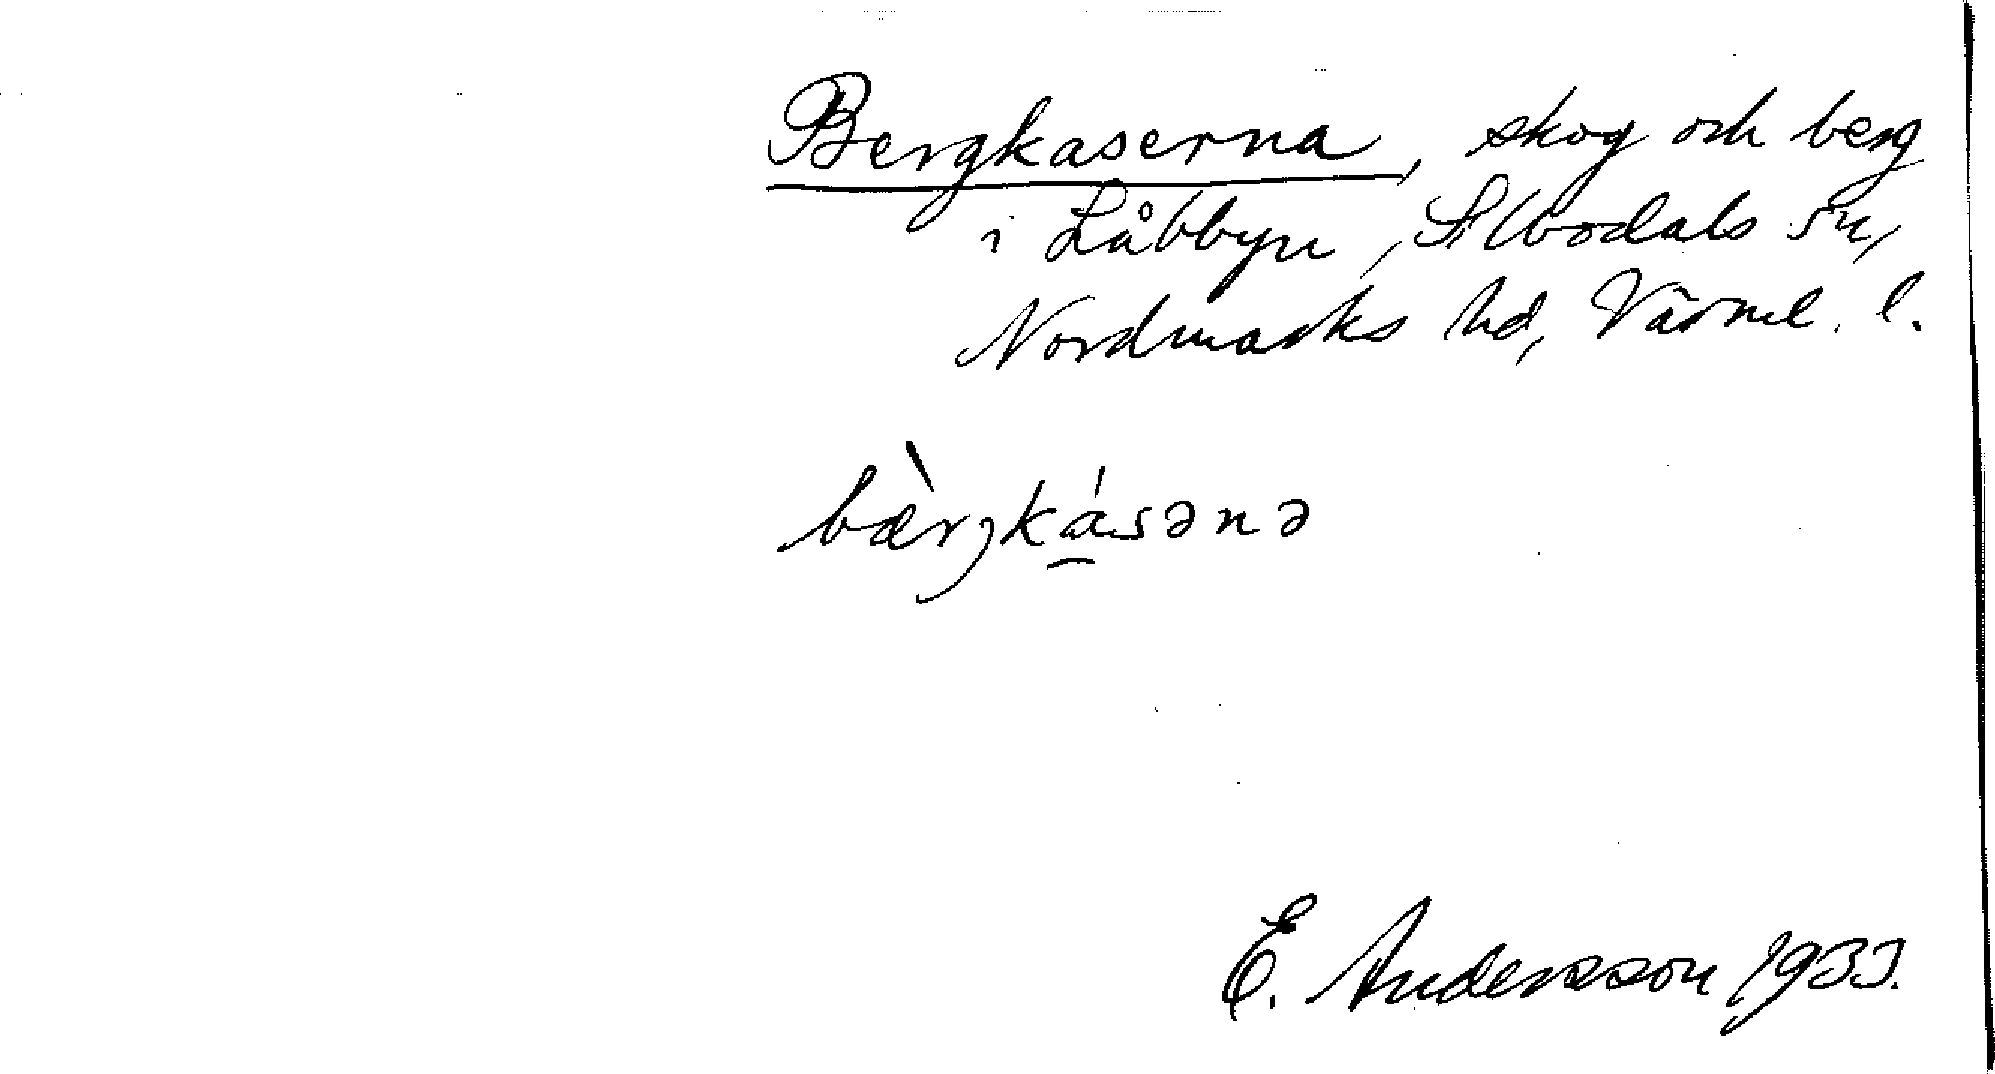 Bergkaserna, skog och berg
i Låbbyn, Silbodals sn,
Nordmarks hd, Värml. l.
bæ̀rgká̱sənə
E. Andersson 1933.